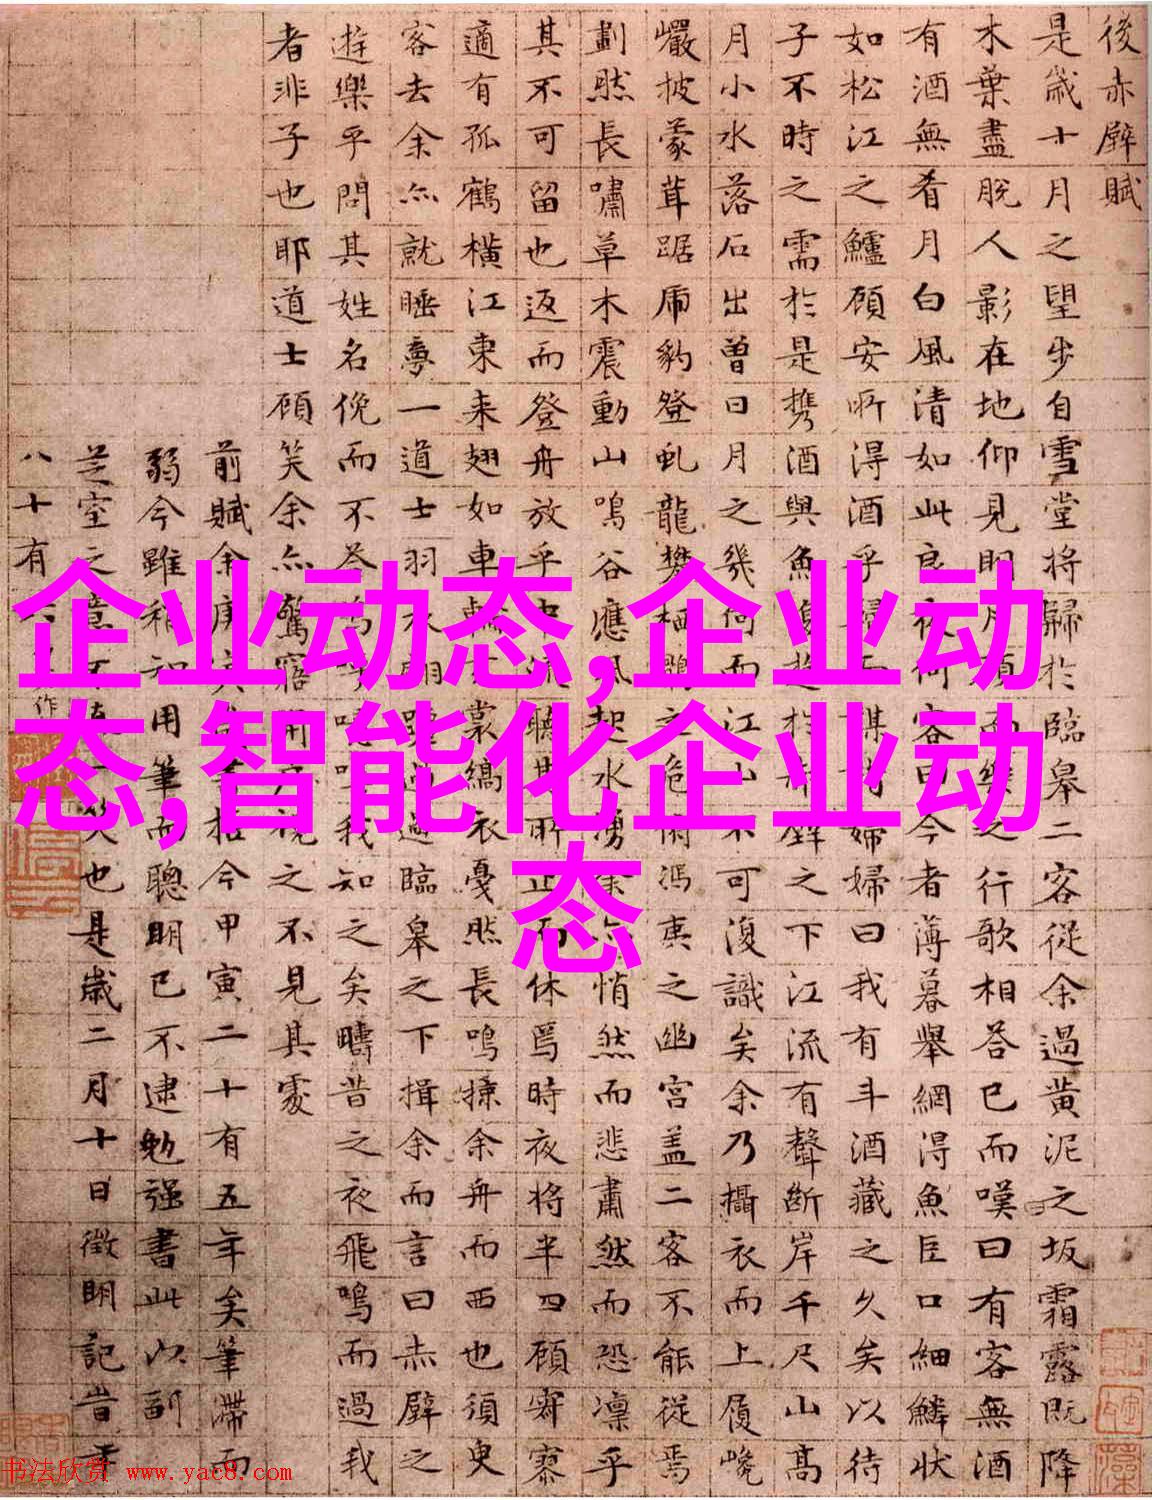 後赤壁賦
是歲十月之望步自雪堂將歸於臨皋二客從余過黃泥之坂霜露既降
木葉盡脫人影在地仰見明月顧而樂之行歌相答已而嘆曰有客無酒
有酒無肴月白風清如此良夜何客曰今者薄暮舉網得魚巨口細鱗狀
如松江之鱸顧安所得酒乎歸而謀諸婦婦曰我有斗酒藏之久矣以待
子不時之需於是攜酒與魚復遊於赤壁之下江流有聲斷岸千尺山高
月小水落石出曾日月之幾何而江山不可復識矣余乃攝衣而上履巉
巖披蒙茸踞虎豹登虬龍攀栖鶻之危俯馮夷之幽宮蓋二客不能從焉
劃然長嘯草木震動山鳴谷應風起水湧余亦悄然而悲肅然而恐凜乎
其不可留也返而登舟放乎中流聽其所止而休焉時夜將半四顧寂寥
適有孤鶴橫江東來翅如車輪玄裳縞衣戛然長鳴掠余舟而西也須臾
客去余亦就睡夢一道士羽衣翩躚過臨皋之下揖余而言曰赤壁之
遊樂乎問其姓名俛而不答嗚呼噫嘻我知之矣疇昔之夜飛鳴而過我
者非子也耶道士顧笑余亦驚寤開戶視之不見其處
前賦余庚戌歲書抵今甲寅二十有五年矣筆滯而
弱今雖稍知用筆而聰明已不逮勉強書此以副
芝室之意
久也是歲二月十日徵明記昔年
八十有
作
企业动态,企业动
态,智能化企业动
态
书法欣赏 www.yac8.com